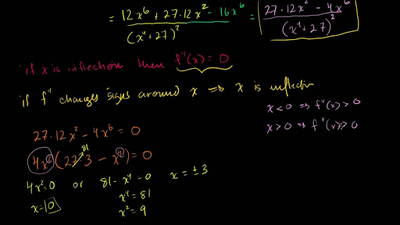 = 12x⁶ + 27·12x² - 16x⁶ / (x⁴+27)² = 27·12x² - 4x⁶ / (x⁴+27)²
if x is inflection then f''(x) = 0
if f'' changes signs around x ⟹ x is inflection
x < 0 ⟹ f''(x) > 0
x > 0 ⟹ f''(x) > 0
27·12x² - 4x⁶ = 0
4x²(27·3 - x⁴) = 0
81
4x² = 0 or 81 - x⁴ = 0 x = ±3
x = 0 x⁴ = 81
x² = 9